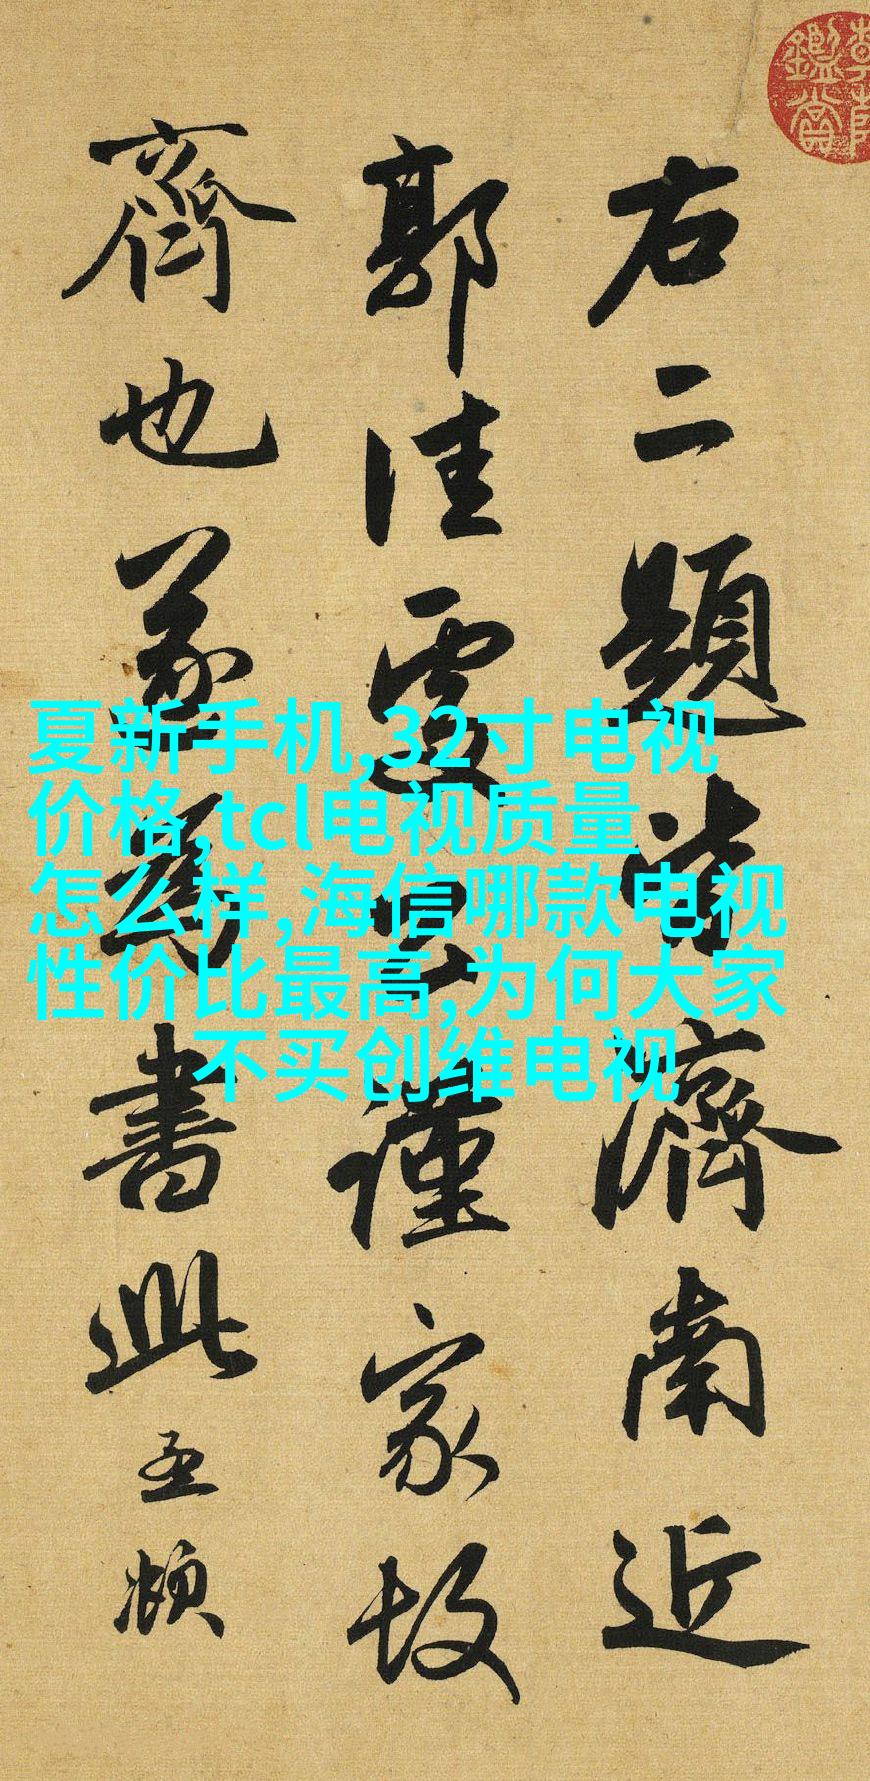 右二題皆濟南近
郭佳處公謹家故
齊也遂爲書此孟頫
夏新手机,32寸电视
价格,tcl电视质量
怎么样,海信哪款电视
性价比最高,为何大家
不买创维电视
鑑賞